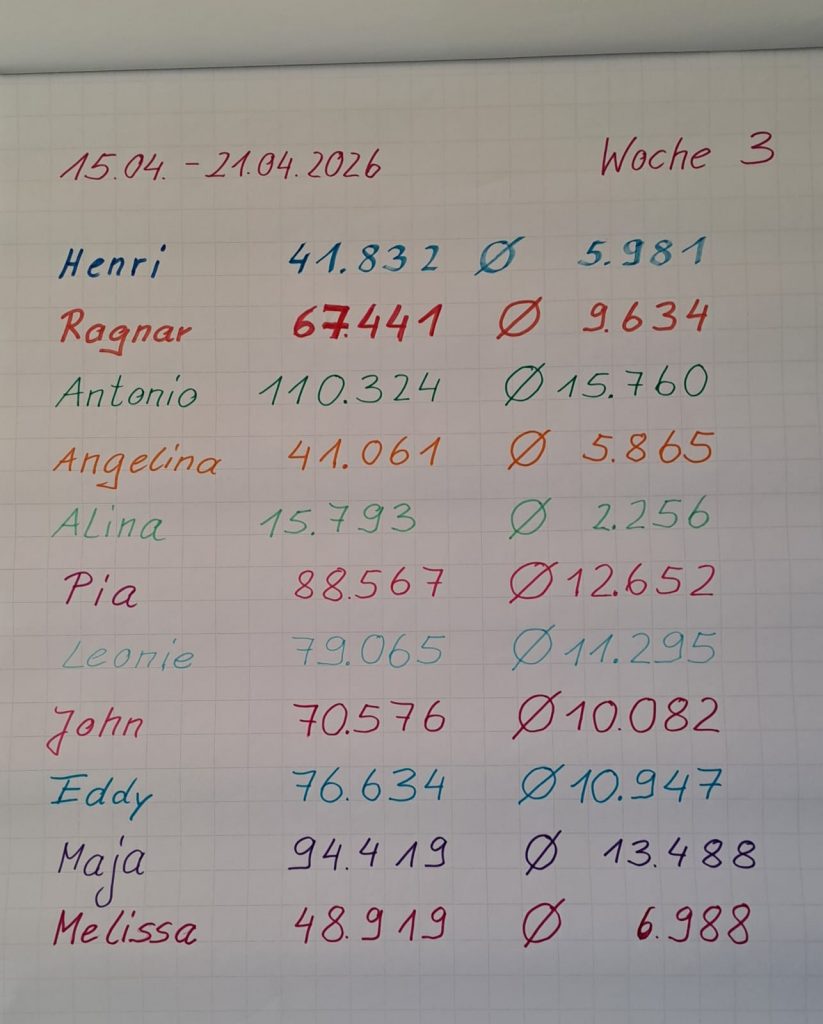 15.04. - 21.04.2026 Woche 3
Henri 41.832 Ø 5.981
Ragnar 67.441 Ø 9.634
Antonio 110.324 Ø 15.760
Angelina 41.061 Ø 5.865
Alina 15.793 Ø 2.256
Pia 88.567 Ø 12.652
Leonie 79.065 Ø 11.295
John 70.576 Ø 10.082
Eddy 76.634 Ø 10.947
Maja 94.419 Ø 13.488
Melissa 48.919 Ø 6.988